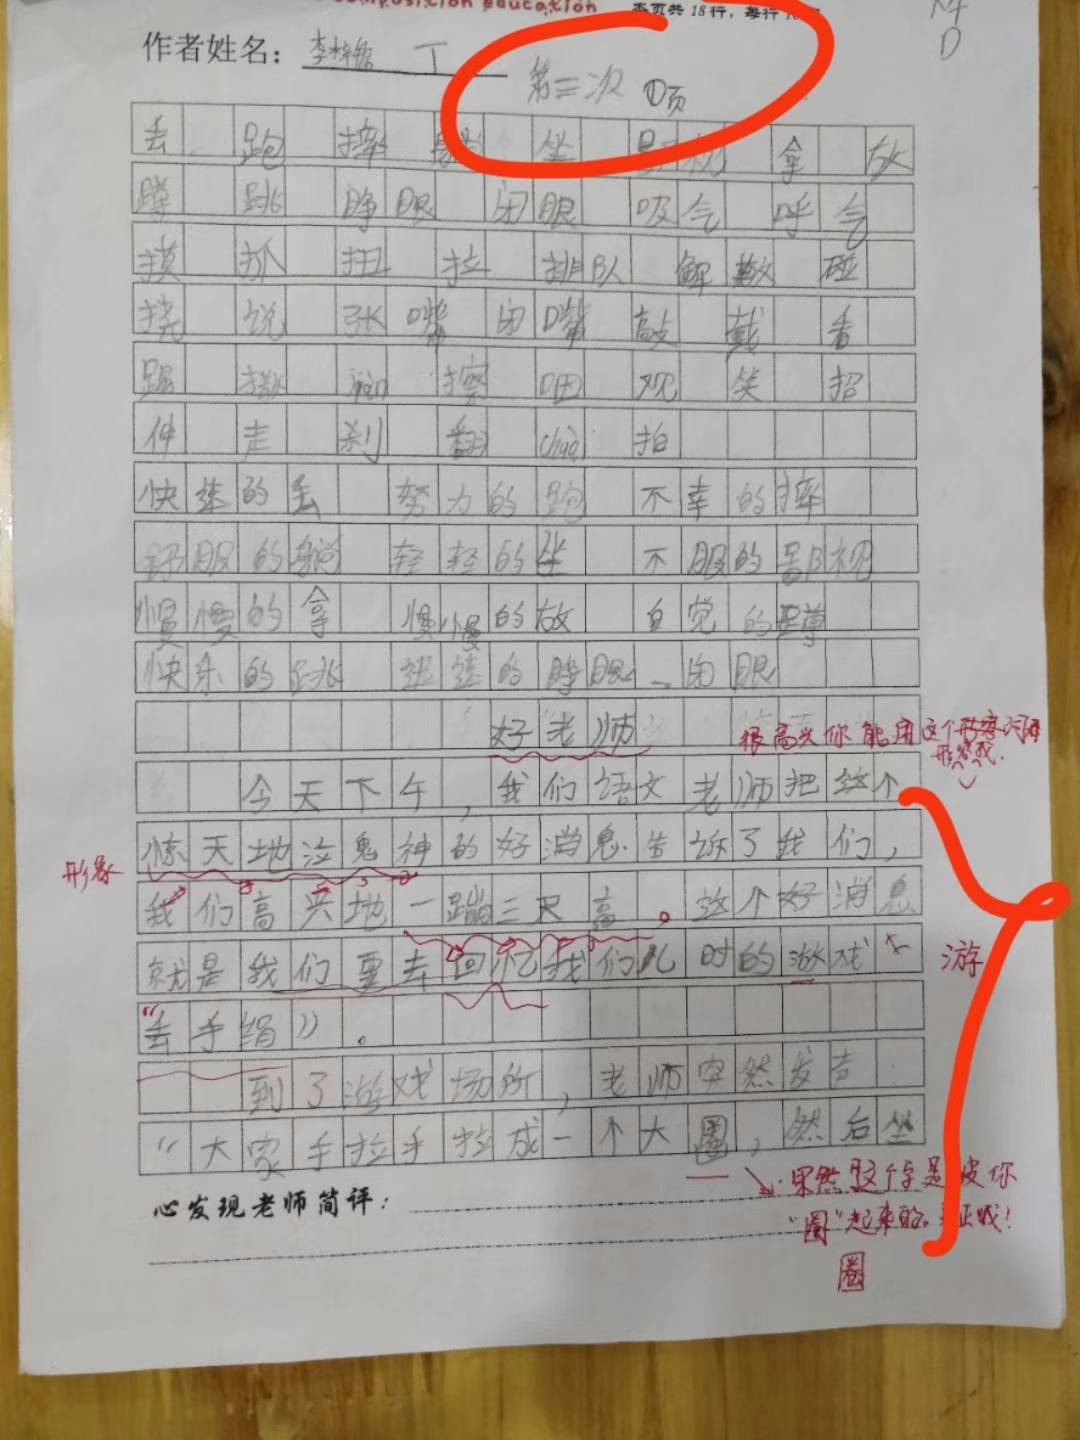 composition education
本页共18行，每行16
作者姓名：李梓 丁
第三次 ①页
丢 跑 摔 躺 坐 鄙视 拿 放
蹲 跳 睁眼 闭眼 吸气 呼气
摸 抓 扭 拉 排队 解散 碰
挠 说 张嘴 闭嘴 敲 戴 看
踢 撒 擦 咽 观 笑 招
伸 走 刹 翻 拍
快速的丢 努力的跑 不幸的摔
舒服的躺 轻轻的坐 不服的鄙视
慢慢的拿 慢慢的放 自觉的蹲
快乐的跳 连续的睁眼、闭眼
好老师
很高兴你能用这个形容词
今天下午，我们语文老师把这个
惊天地泣鬼神的好消息告诉了我们，
形象
我们高兴地一蹦三尺高。这个好消息
就是我们要去回忆我们儿时的游戏
游
“丢手绢”。
到了游戏场所，老师突然发声：
“大家手拉手拉成一个大圈，然后坐
心发现老师简评：
果然这个字是被你
“圈”起来的。
圈